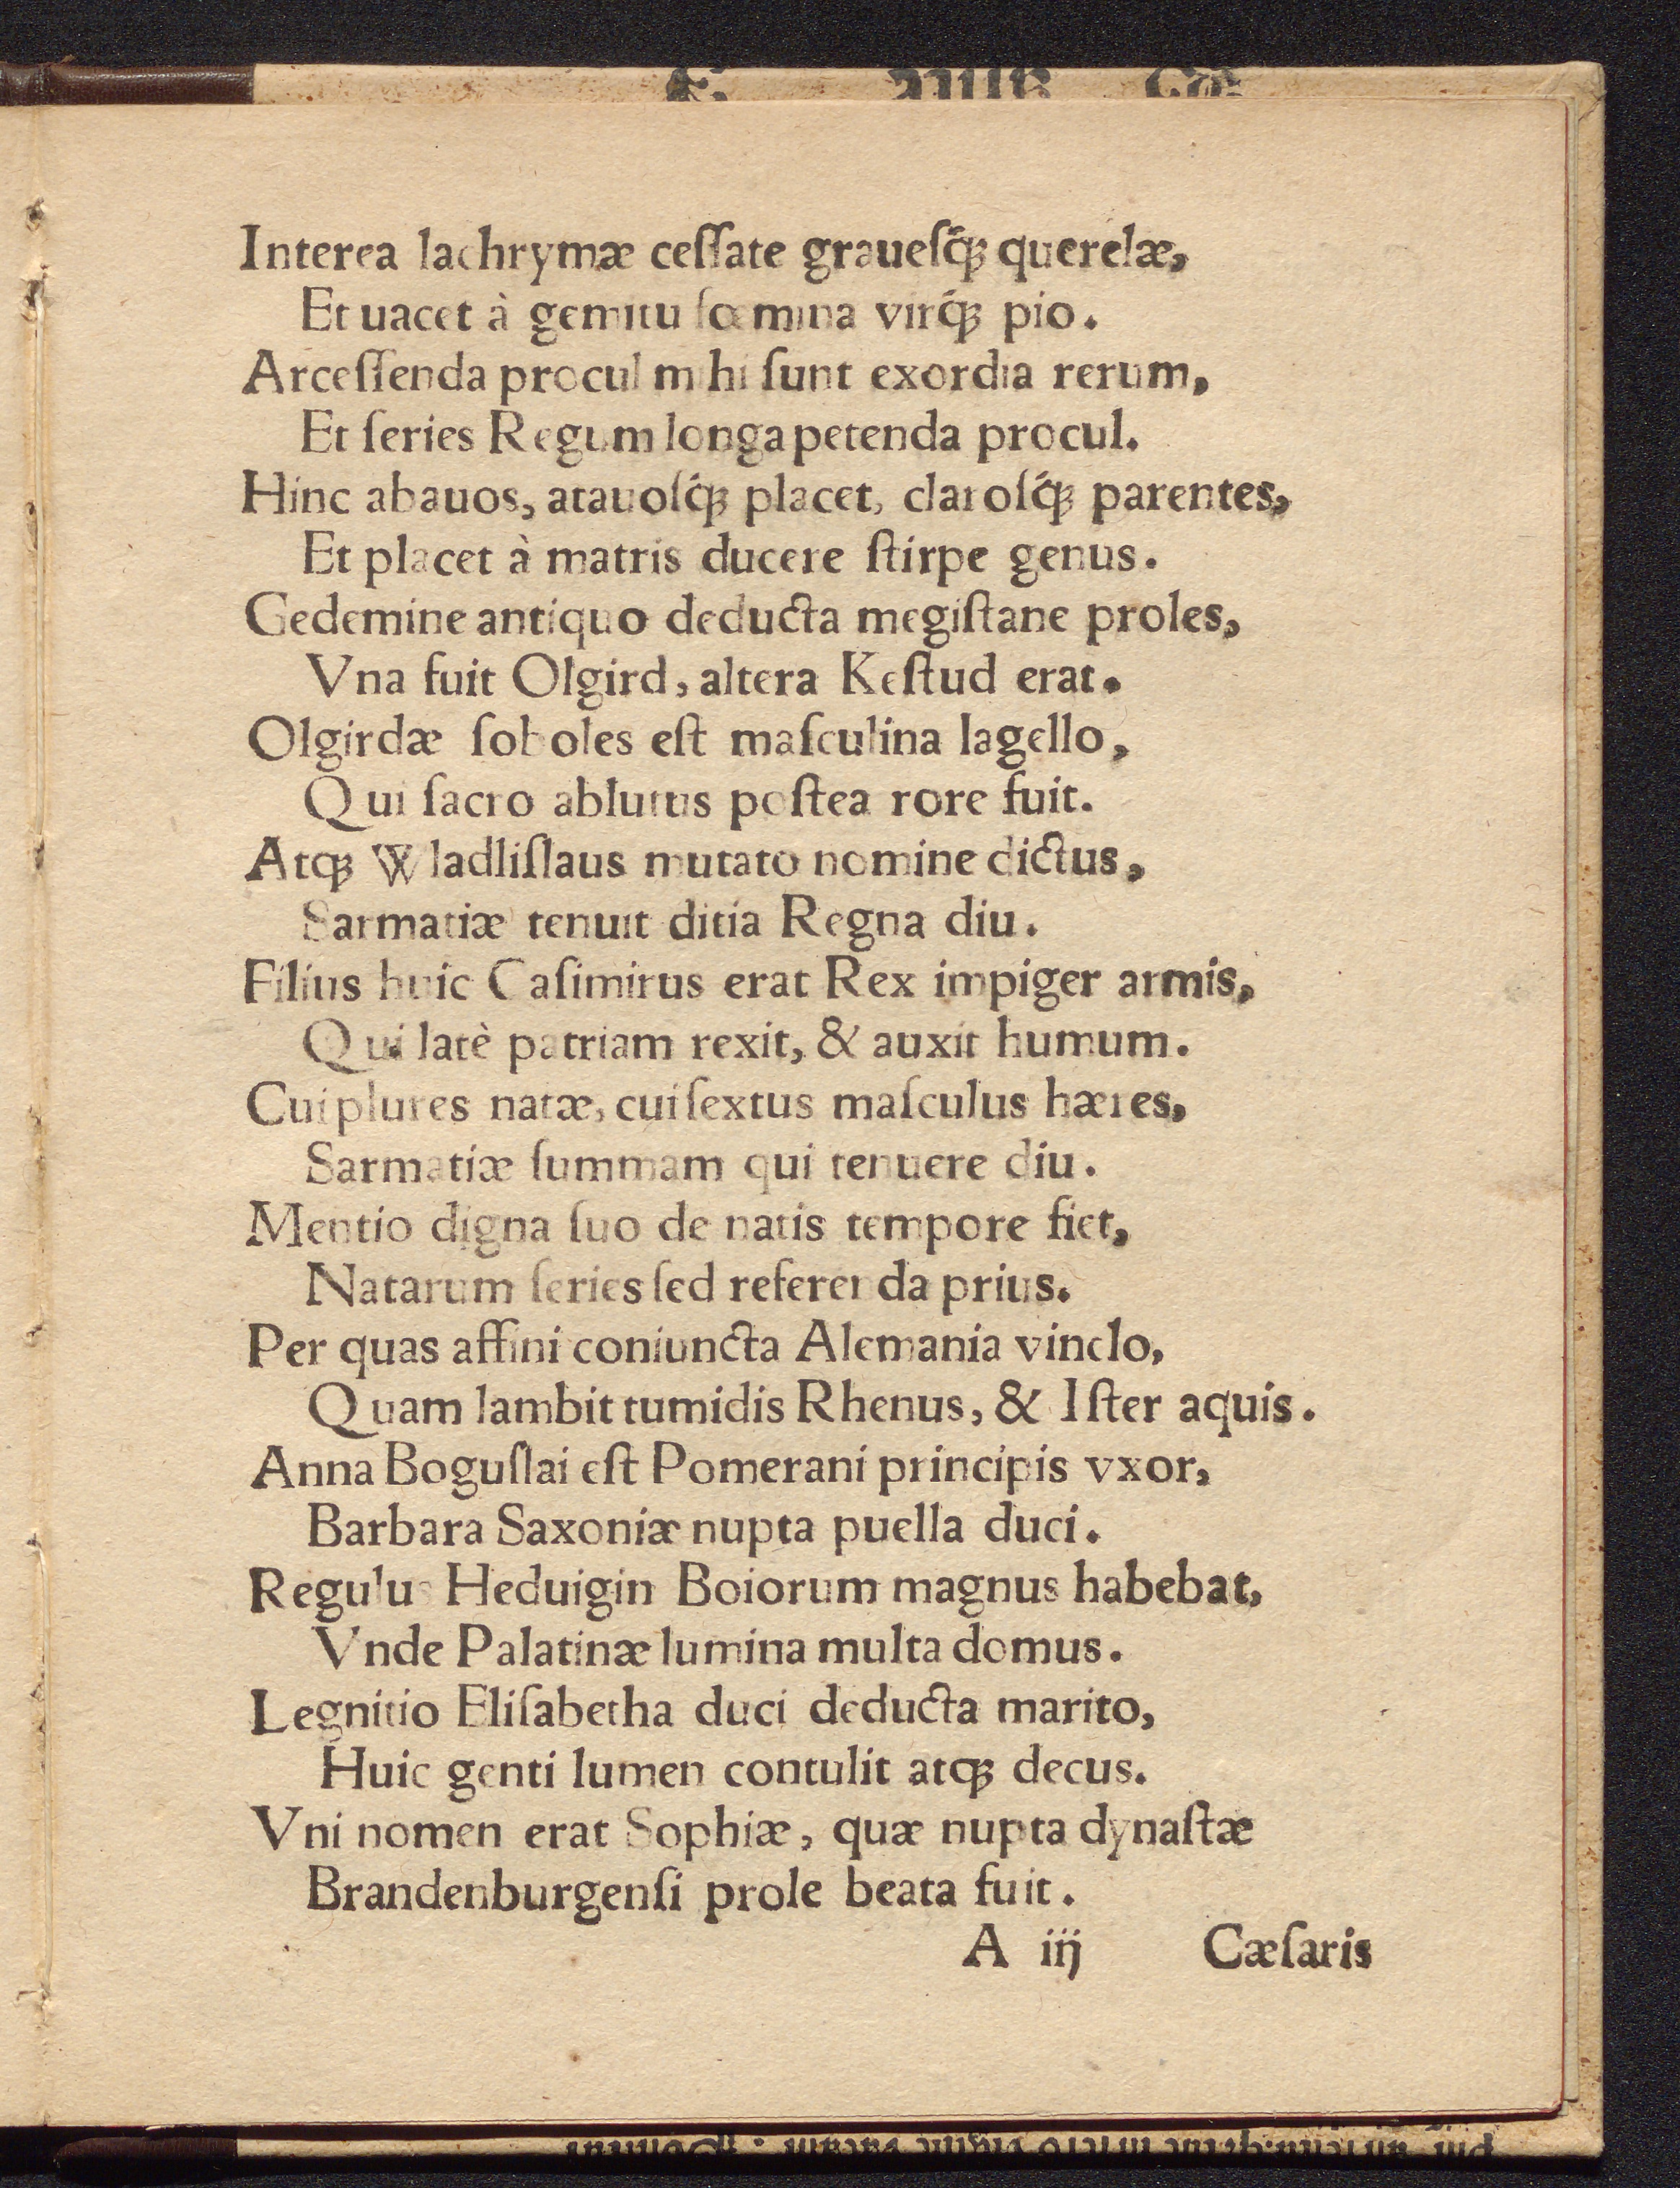 Interea lachrymæ ceſſate graueſq́ꝫ querelæ,
Et uacet à gemitu fœmina virq́ꝫ pio.
Arceſſenda procul mihi ſunt exordia rerum,
Et ſeries Regum longa petenda procul.
Hinc abauos, atauoſq́ꝫ placet, claroſq́ꝫ parentes,
Et placet à matris ducere ſtirpe genus.
Gedemine antiquo deducta megiſtane proles,
Vna fuit Olgird, altera Keſtud erat.
Olgirdæ ſoboles eſt maſculina Iagello,
Qui ſacro ablutus poſtea rore fuit.
Atqꝫ Wladliſlaus mutato nomine dictus,
Sarmatiæ tenuit ditia Regna diu.
Filius huic Caſimirus erat Rex impiger armis,
Qui latè patriam rexit, & auxit humum.
Cui plures natæ, cui ſextus maſculus hæres,
Sarmatiæ ſummam qui tenuere diu.
Mentio digna ſuo de natis tempore fiet,
Natarum ſeries ſed referenda prius.
Per quas affini coniuncta Alemania vinclo,
Quam lambit tumidis Rhenus, & Iſter aquis.
Anna Boguſlai eſt Pomerani principis vxor,
Barbara Saxoniæ nupta puella duci.
Regulus Heduigin Boiorum magnus habebat,
Vnde Palatinæ lumina multa domus.
Legnitio Eliſabetha duci deducta marito,
Huic genti lumen contulit atqꝫ decus.
Vni nomen erat Sophiæ, quæ nupta dynaſtæ
Brandenburgenſi prole beata fuit.
A iij Cæſaris